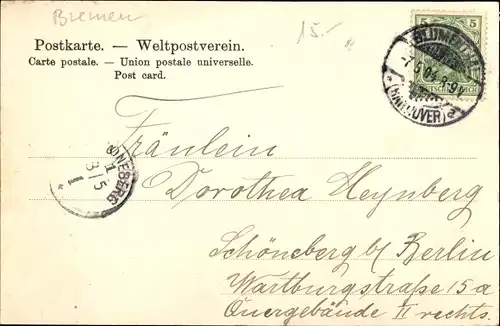 Bremen
15.-
Postkarte. — Weltpostverein.
Carte postale. — Union postale universelle.
Post card.
5 5
BLUMENTHAL
(HANNOVER)
Fräulein
Dorothea Heynberg
Schöneberg b/ Berlin
Wartburgstraße 15a
Quergebände II rechts.